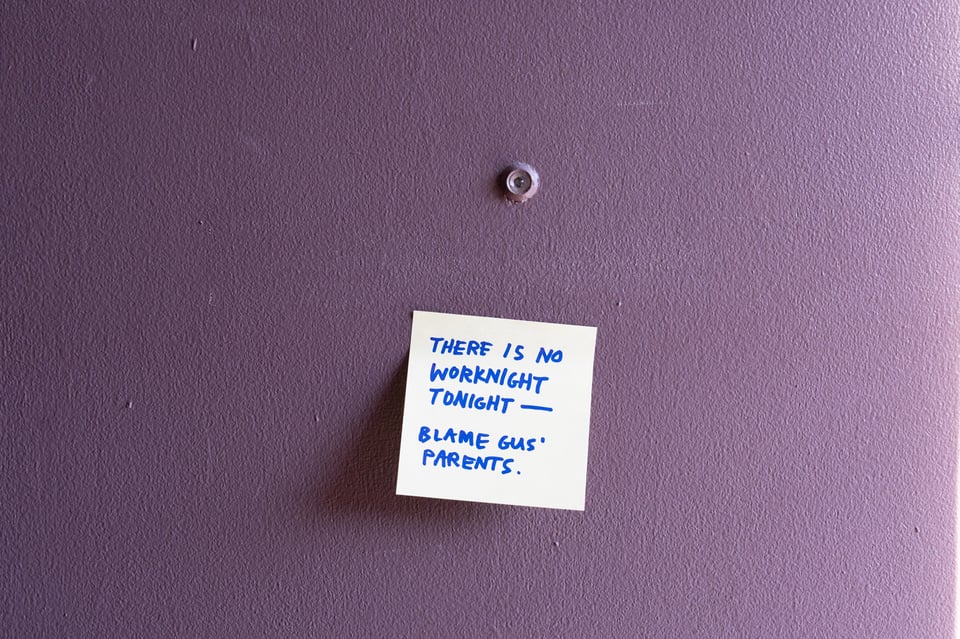 THERE IS NO
WORKNIGHT
TONIGHT —
BLAME GUS'
PARENTS.